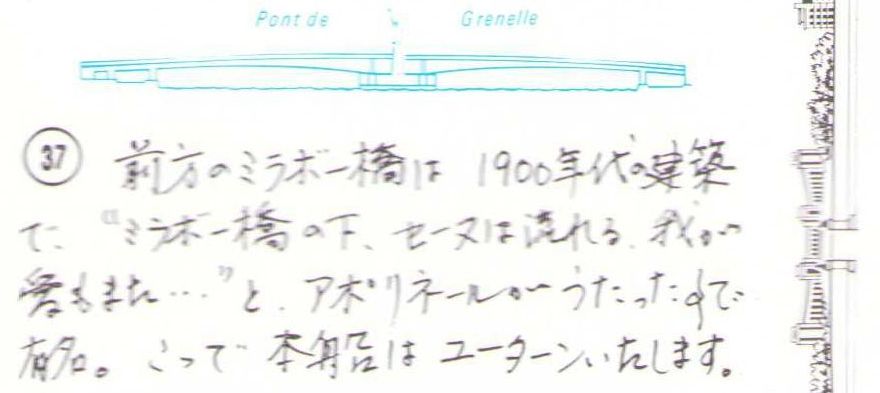 Pont de Grenelle
37 前方のミラボー橋は 1900年代の建築
で、"ミラボー橋の下、セーヌは流れる、我が
愛もまた…"と、アポリネールがうたったので
有名。こゝで本船はユーターンいたします。